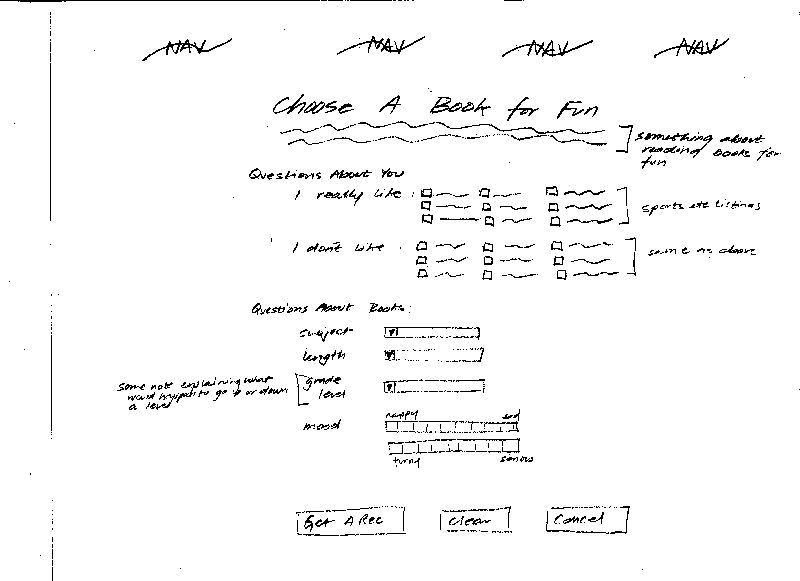 NAV NAV NAV NAV
Choose A Book for Fun
something about
reading books for
fun
Questions About You
I really like :
sports etc listings
I don't like :
same as above
Questions About Books:
subject
length
some note explaining what
would happen to go up or down
a level
grade
level
mood
happy sad
funny serious
Get A Rec Clear Cancel